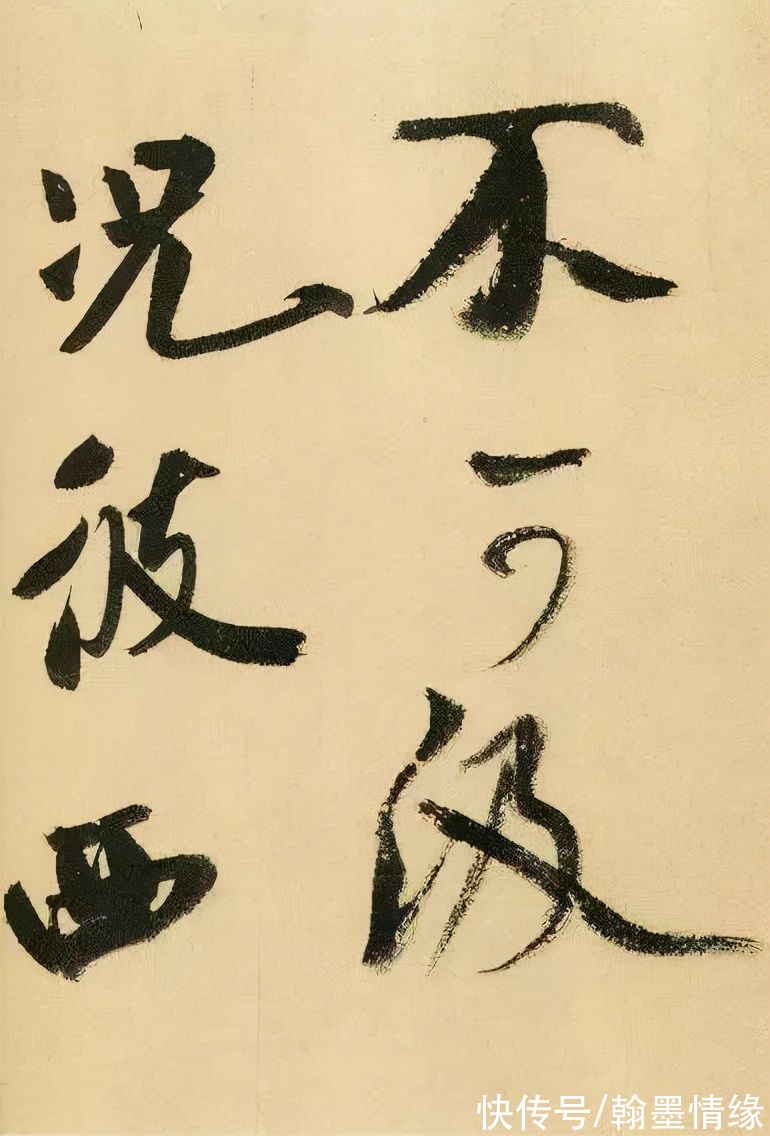 不可汲
况彼西
快传号/翰墨情缘